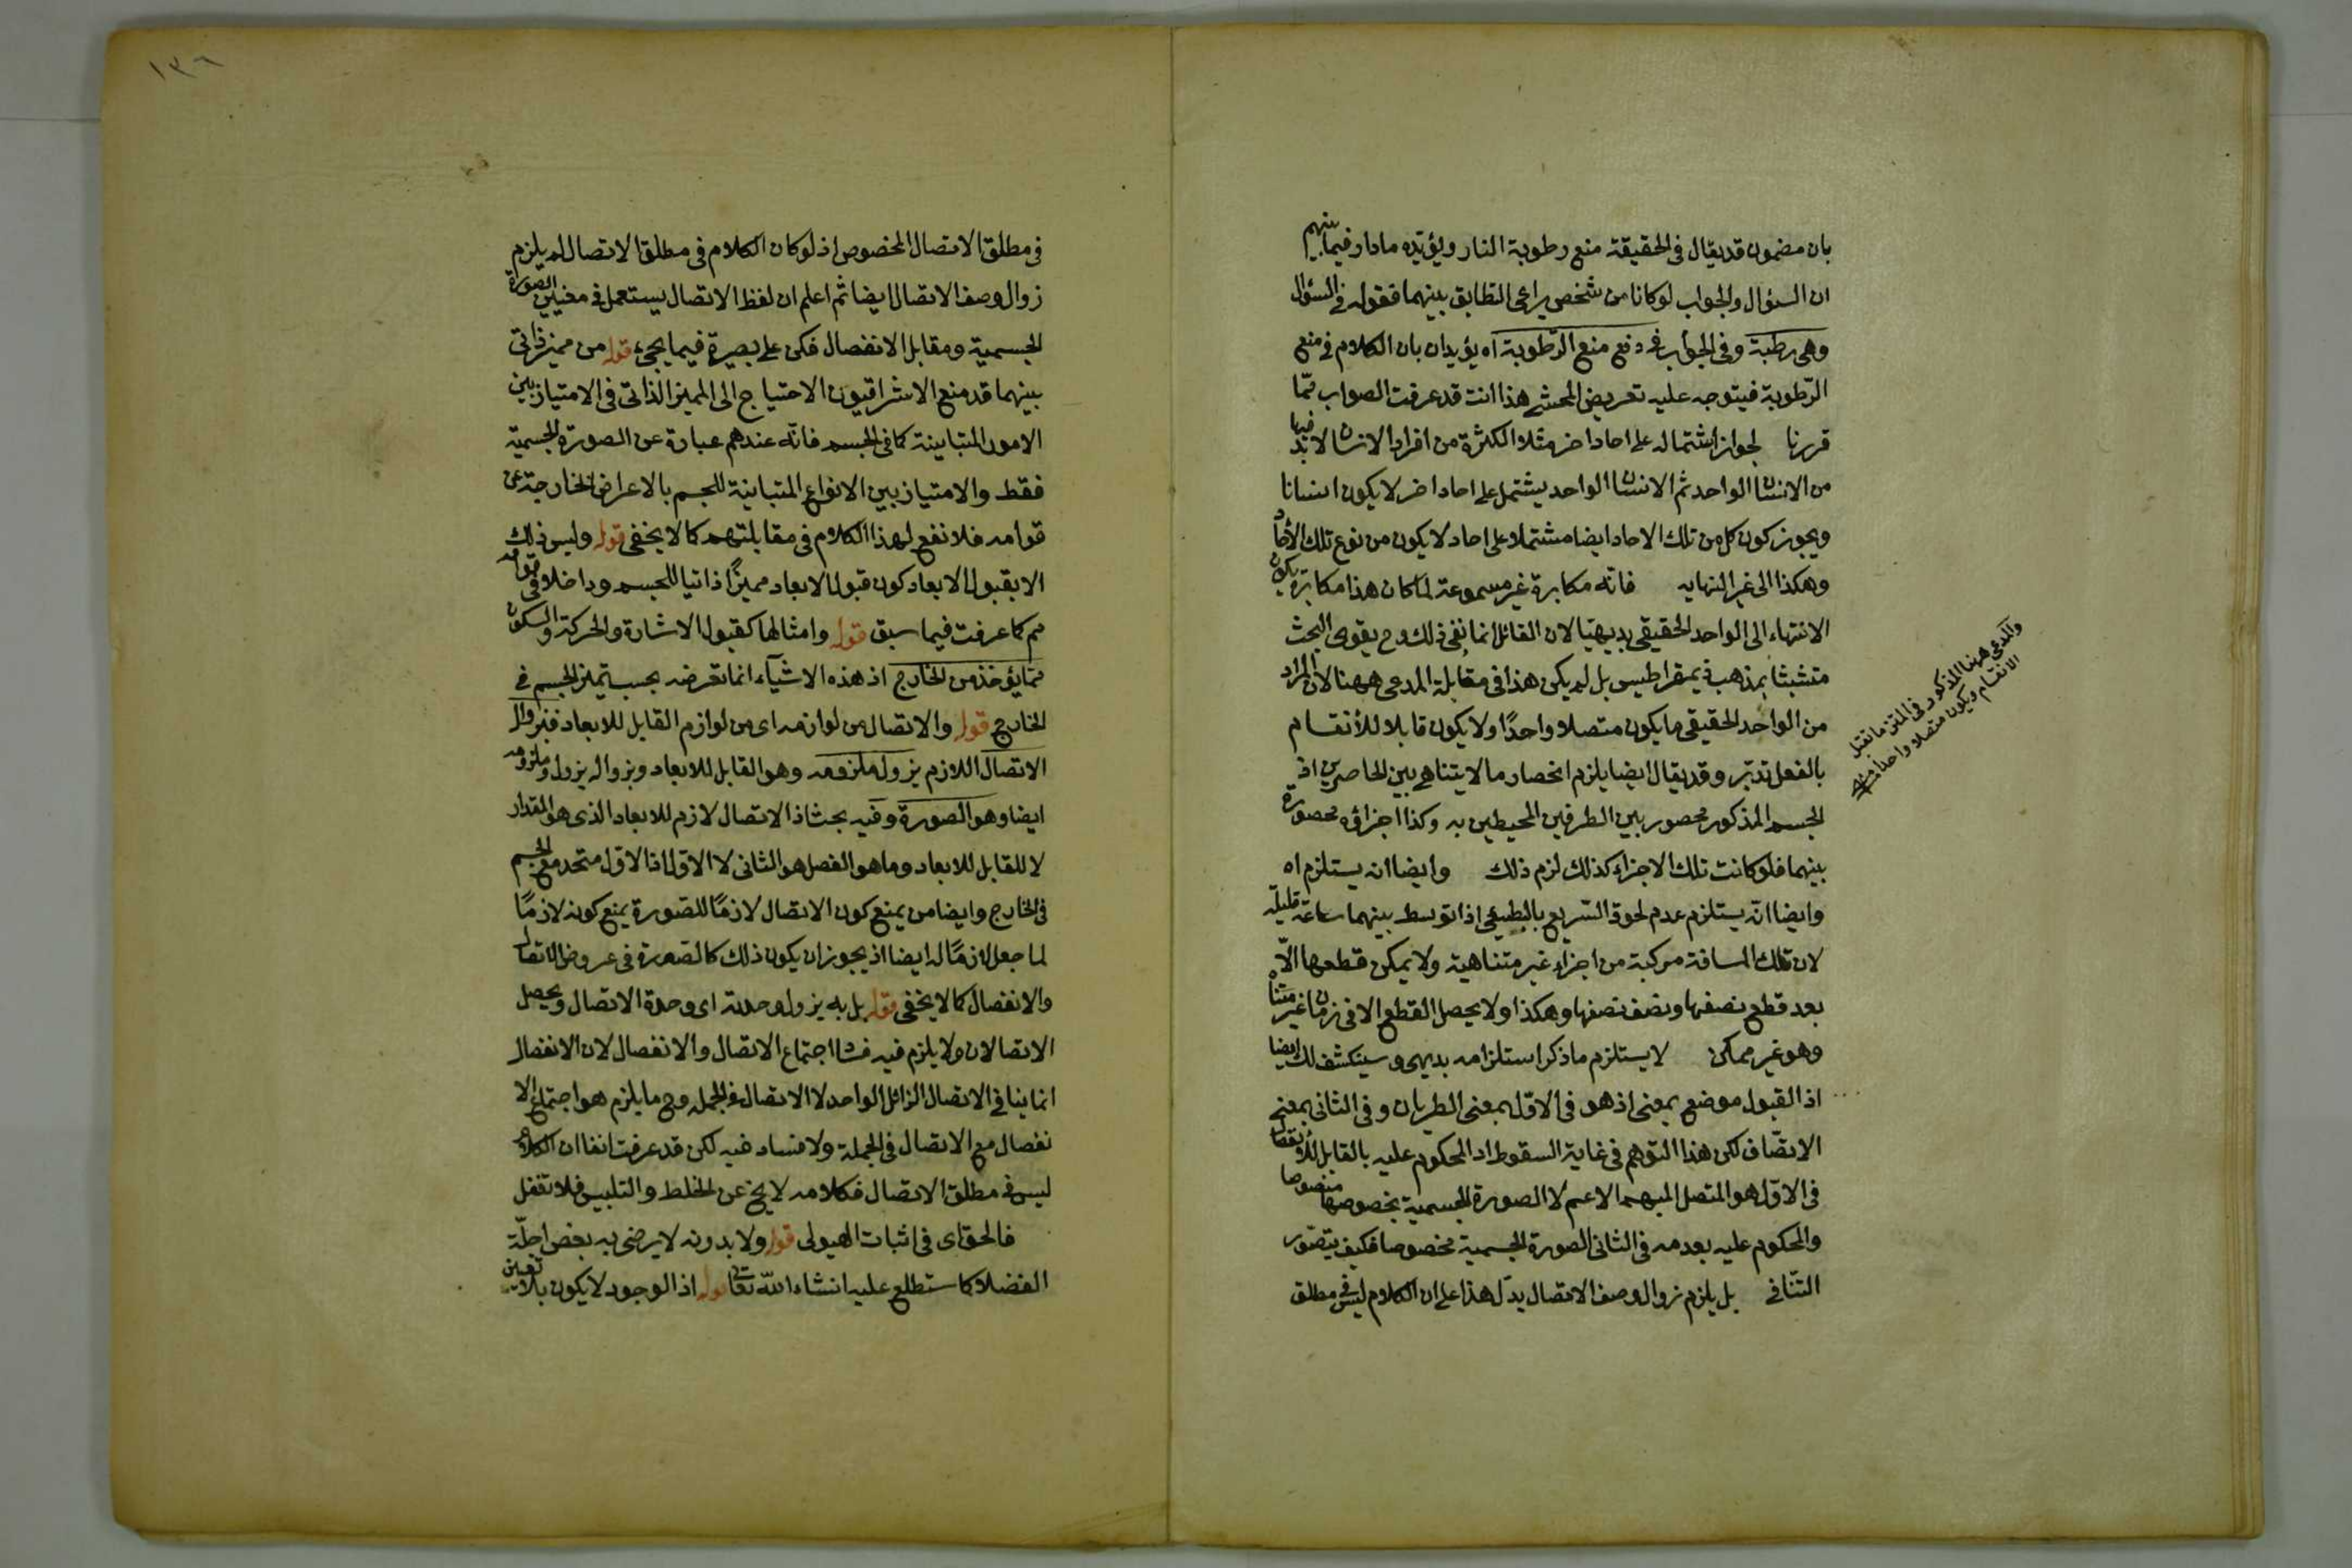 بان مضمون قد يقال فى الحقيقة منع رطوبة النار ويؤيّده ما دار فيما بينهم
ان السؤال والجواب لو كانا من شخص يراعى التطابق بينهما فقوله فى السؤال
وهى رطبة وفى الجواب فى دفع منع الرّطوبة اه يؤيدان بان الكلام فى منع
الرّطوبة فيتوجه عليه تعريض المحشى هذا انت قد عرفت الصواب ممّا
قررنا لجواز اشتماله على احاد اخر مثلا الكثرة من افراد الانسان لا بدّ فيها
من الانسان الواحد ثم الانسان الواحد يشتمل على احاد اخر لا يكون انسانا
ويجوز كون كل من تلك الاحاد ايضا مشتملا على احاد لا يكون من نوع تلك الأحاد
وهكذا الى غير النهايه فانّه مكابرة غير مسموعة لما كان هذا مكابرة يكون
الانتهاء الى الواحد الحقيقى بديهيّا لان القائل انما نفى ذلك وح يقوى البحث
متشبثا بمذهب ذيمقراطيس بل لم يكن هذا فى مقابلة المدعى ههنا لان المراد
من الواحد الحقيقى ما يكون متصلا واحدًا ولا يكون قابلا للأنقسام
بالفعل تدبّر وقد يقال ايضا يلزم انحصار ما لا يتناهى بين الحاصرين اذ
الجسم المذكور محصور بين الطرفين المحيطين به وكذا اجزائه محصورة
بينهما فلو كانت تلك الاجزاء كذلك لزم ذلك وايضا انه يستلزم اه
وايضا انّه يستلزم عدم لحوق السّريع بالبطيئى اذا توسط بينهما ساعة قليلة
لان تلك المسافة مركبة من اجزاء غير متناهية ولا يمكن قطعها الّا
بعد قطع نصفها ونصف نصفها وهكذا ولا يحصل القطع الا فى زمان غير متناه
وهو غير ممكن لا يستلزم ما ذكر استلزامه بديهى وسينكشف لك ايضا
اذ القبول موضع بمعنى اذ هو فى الاوّل بمعنى الطريان وفى الثانى بمعنى
الاتصّاف لكن هذا التوهم فى غاية السقوط اذ المحكوم عليه بالقابل للأنفصال
فى الاوّل هو المتصل المبهم الاعم لا الصورة الجسمية بخصوصها منصوصا
والمحكوم عليه بعدمه فى الثانى الصورة الجسمية مخصوصا فكيف يتصّور
التنّافى بل يلزم زوال وصف الاتصال يدّل هذا على ان الكلام ليس فى مطلق
والمدعى ههنا المذكور فى المتن ما تقبل
الانقسام ويكون متصلا واحدا منه
١٣٦
فى مطلق الاتصال المخصوص اذ لو كان الكلام فى مطلق الاتصال لم يلزم
زوال وصف الاتصال ايضا ثم اعلم ان لفظ الاتصال يستعمل فى معنيين الصورة
الجسمية ومقابل الانفصال فكن على بصيرة فيما يجىء قوله من مميز ذاتى
بينهما قد منع الاشراقيون الاحتياج الى المميز الذاتى فى الامتياز بين
الامور المتباينة كما فى الجسم فانّه عندهم عبارة عن الصورة الجسمية
فقط والامتياز بين الانواع المتباينة للجسم بالاعراض الخارجة عن
قوامه فلا نفع لهذا الكلام فى مقابلتهم كما لا يخفى قوله وليس ذلك
الا بقبول الابعاد كون قبول الابعاد مميزًا ذاتيا للجسم وداخلا فى قوامه
مم كما عرفت فيما سبق قوله وامثالها كقبول الاشارة والحركة والسكون
ممّا يؤخذ من الخارج اذ هذه الاشيآء انما تعرضه بحسب تميز الجسم فى
الخارج قوله والاتصال من لوازمه اى من لوازم القابل للابعاد فبزوال
الاتصال اللازم يزول ملزومه وهو القابل للابعاد وبزواله يزول وملزومه
ايضا وهو الصورة وفيه بحث اذ الاتصال لازم للابعاد الذى هو المقدار
لا للقابل للابعاد وما هو الفصل هو الثانى لا الاول اذ الاول متحد مع الجسم
فى الخارج وايضا من يمنع كون الاتصال لازمًا للصّورة يمنع كونه لازمًا
لما جعل لازمًا له ايضا اذ يجوز ان يكون ذلك كالصّورة فى عروض الاتصال
والانفصال كما لا يخفى قوله بل به يزول وحدته اى وحدة الاتصال ويحصل
الاتصالان ولا يلزم فيه فساد اجتماع الاتصال والانفصال لان الانفصال
انما ينافى الاتصال الزائل الواحد لا الاتصال فى الجمله وح ما يلزم هو اجتماع الا
نفصال مع الاتصال فى الجملة ولا فساد فيه لكن قد عرفت انفا ان الكلام
ليس فى مطلق الاتصال فكلامه لا يخ عن الخلط والتلبيس فلا تغفل
فالحق اى فى اثبات الهيولى قوله ولا بدونه لا يرضى به بعض اجلّة
الفضلا كما ستطلع عليه انشاء اللّه تعالى قوله اذ الوجود لا يكون بلا تعين